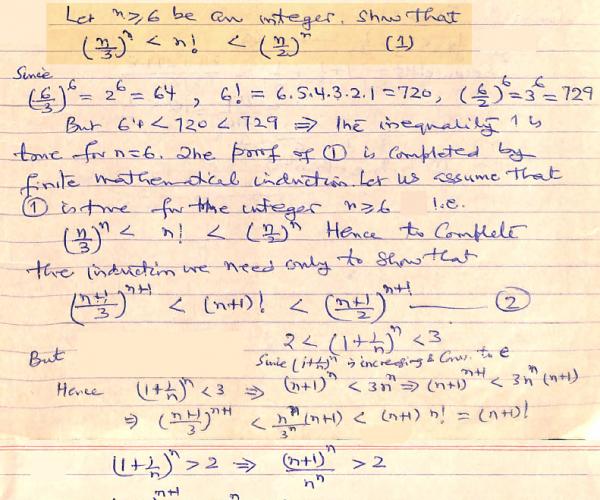 Let n ⩾ 6 be an integer. Show that
(n/3)^n < n! < (n/2)^n (1)
Since
(6/3)^6 = 2^6 = 64, 6! = 6.5.4.3.2.1 = 720, (6/2)^6 = 3^6 = 729
But 64 < 720 < 729 ⇒ The inequality 1 is
true for n=6. The proof of ① is completed by
finite mathematical induction. Let us assume that
① is true for the integer n ⩾ 6 i.e.
(n/3)^n < n! < (n/2)^n Hence to complete
the induction we need only to show that
((n+1)/3)^(n+1) < (n+1)! < ((n+1)/2)^(n+1) ——— ②
2 < (1+1/n)^n < 3
But Since (1+1/n)^n is increasing & Conv. to e
Hence (1+1/n)^n < 3 ⇒ (n+1)^n < 3n^n ⇒ (n+1)^(n+1) < 3n^n (n+1)
⇒ ((n+1)/3)^(n+1) < n^n/3^n (n+1) < (n+1) n! = (n+1)!
(1+1/n)^n > 2 ⇒ (n+1)^n/n^n > 2